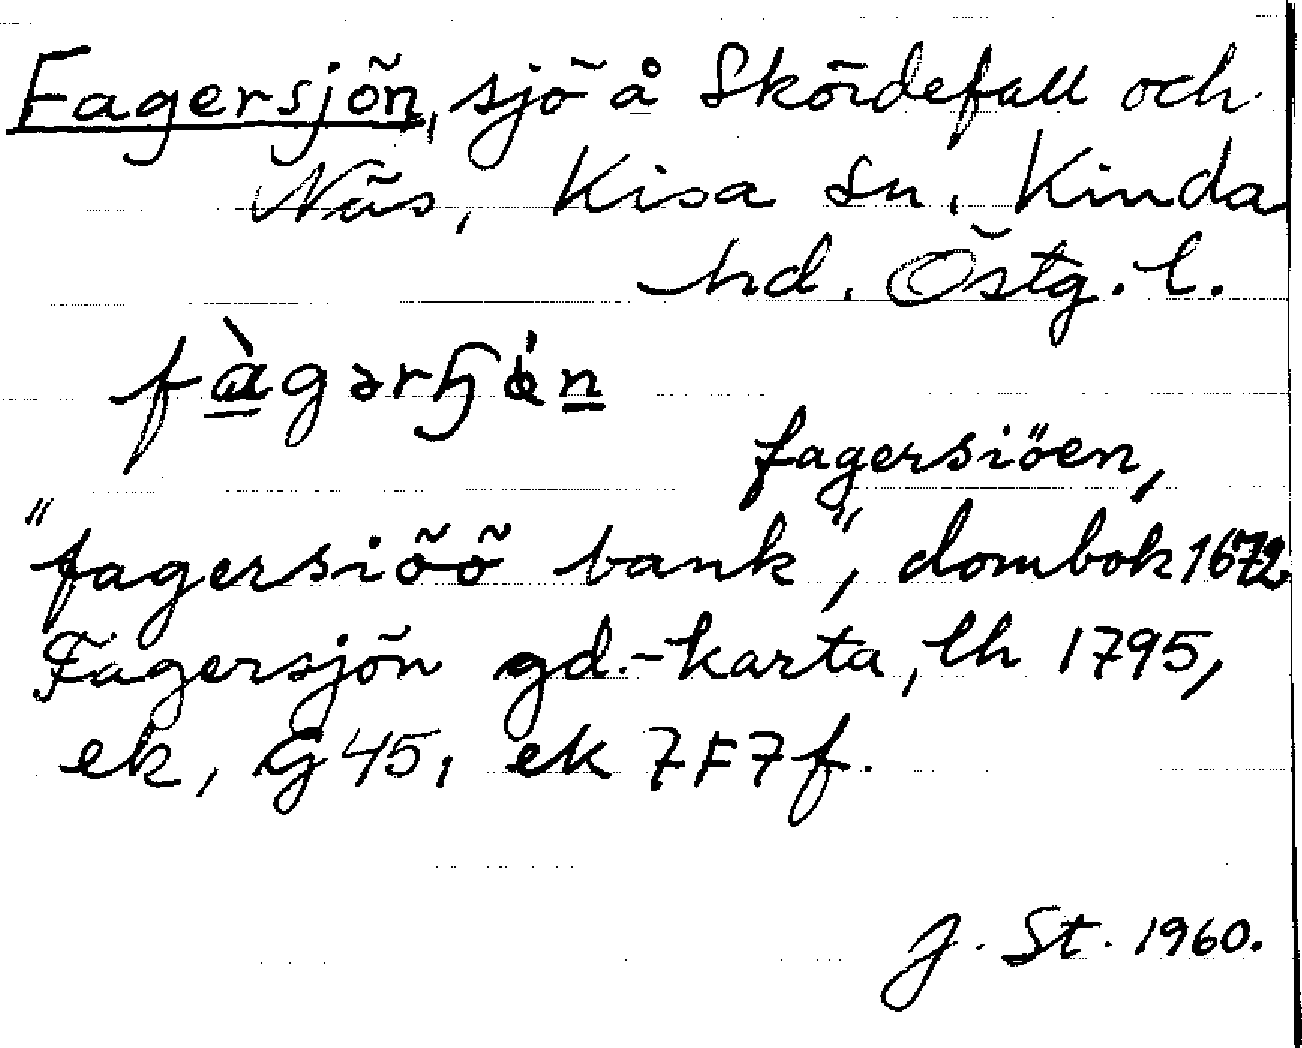 Fagersjön, sjö å Skördefall och
Näs, Kisa sn, Kinda
hd. Östg. l.
fagersiöen,
"fagersiöö bank", dombok 1672
Fagersjön gd.-karta, lh 1795,
ek, G45, ek 7F7f.
J. St. 1960.